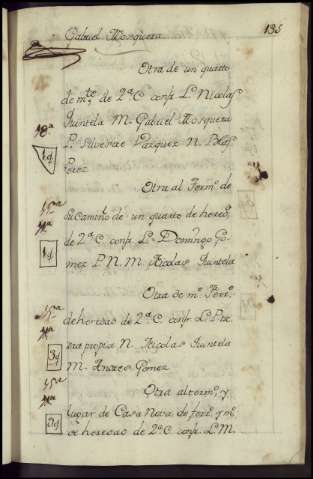 Gabriel Mosquera
135
Otra de un quarto
de m.te de 2ª C. confr. L. Nicolas
Quintela M. Gabriel Mosquera
P. Silverae Vazquez N. Blas
Perez
1q
Otra al Form.o de
su Camiño de un quarto de heredo.
de 2ª C. confr. L. Domingo Go-
mez P. N. M. Nicolas Quintela
1q
Otra de m.o Ferr.o
de heredad de 2ª C. confr. L. P.
propia N. Nicolas Quintela
M. Andres Gomez
3q
Otra al term.o y
lugar de Casa Nova de ferr.o y m.o
de heredad de 2ª C. confr. L. M.